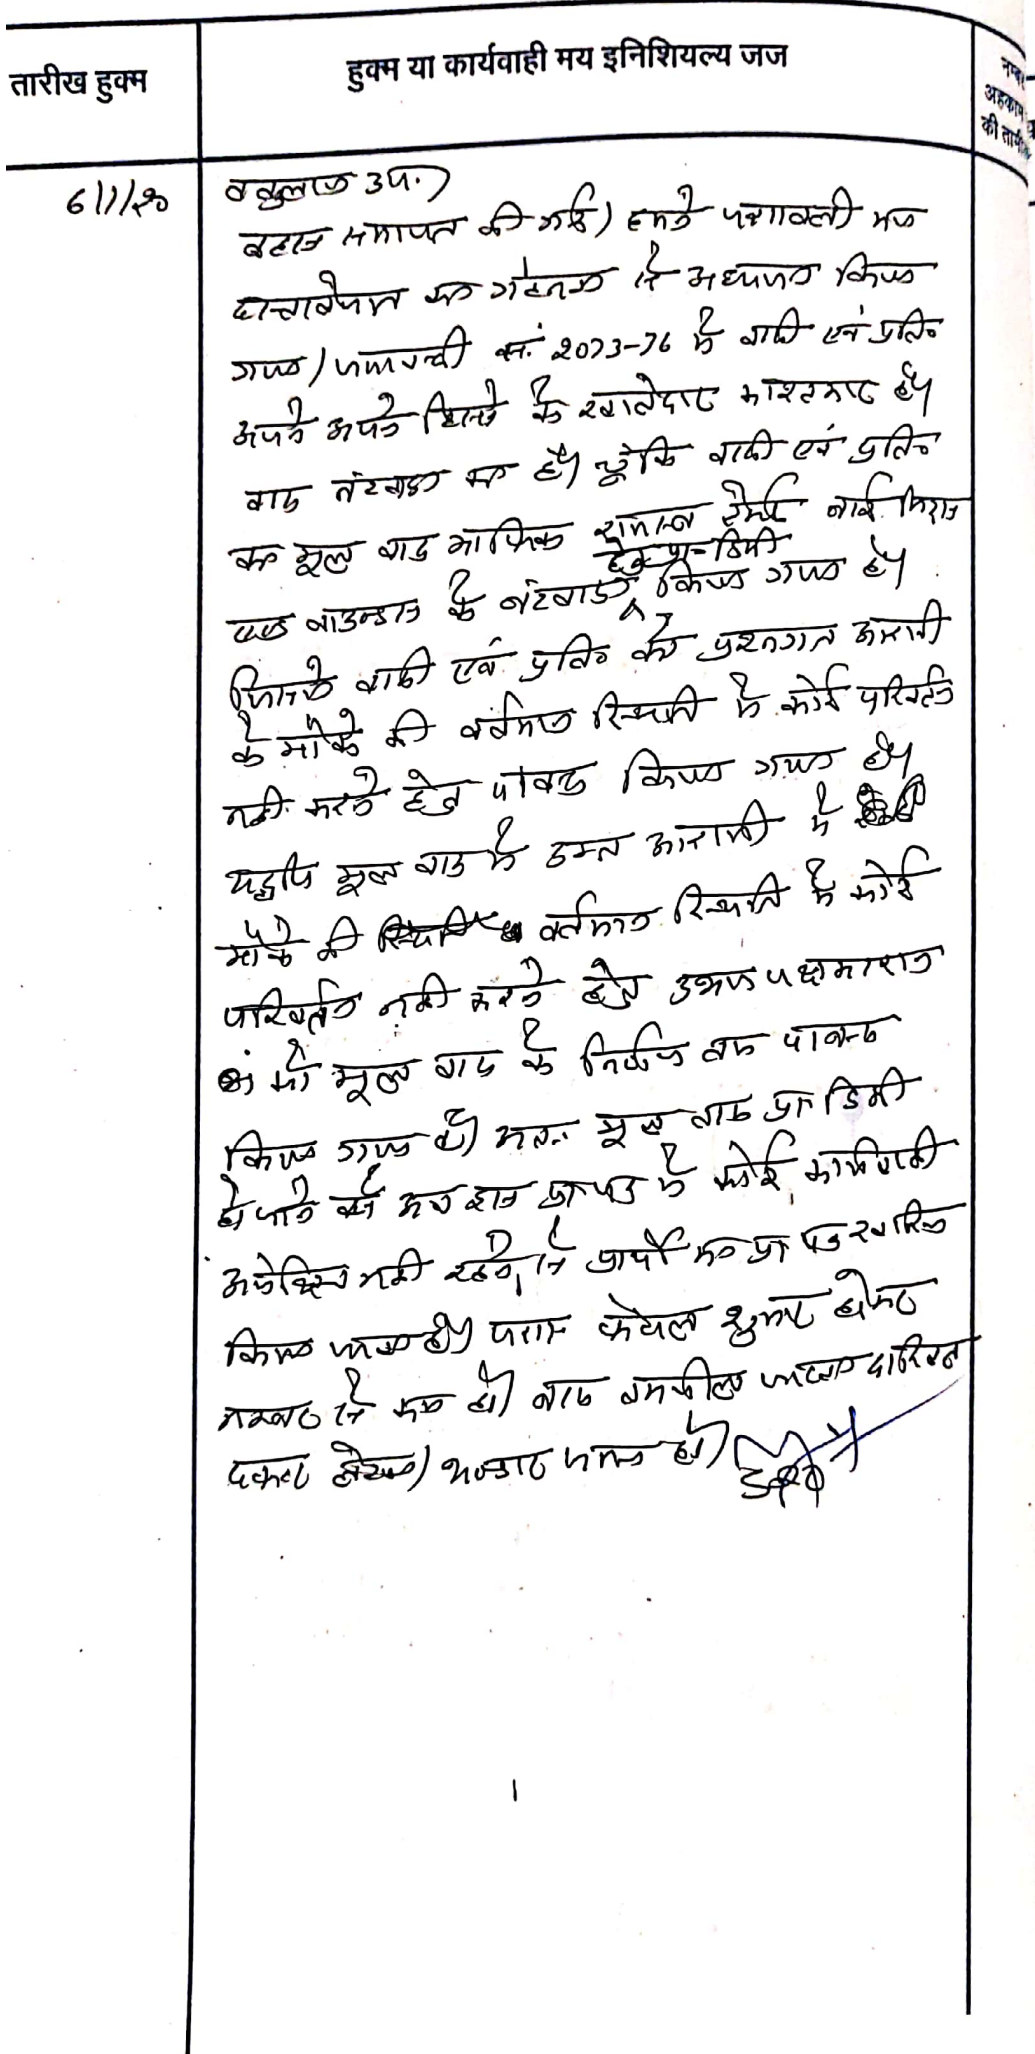 तारीख हुक्म
हुक्म या कार्यवाही मय इनिशियल्य जज
नम्बर
अहकाम
की तामील
6/1/20
वकुलाय उप.)
बहस समाप्त की गई) हमने पत्रावली मय
दस्तावेजात का गहनता से अध्ययन किया
गया) जमाबन्दी सं. 2073-76 मे वादी एवं प्रति०
अपने अपने हिस्से के खातेदार काश्तकार है।
वाद बंटवाडा का है। चूंकि वादी एवं प्रति०
का मूल वाद माफिक
हेतु प्रा-डिक्री
के बंटवाडा किया गया है।
जिसमे वादी एवं प्रति० को प्रश्नगत आराजी
के मौके की वर्तमान स्थिति मे कोई परिवर्तन
नही करने हेतु पाबन्द किया गया है।
यद्यपि मूल वाद मे उक्त आराजी मे
मौके की वर्तमान स्थिति मे कोई
परिवर्तन नही करने हेतु उभय पक्षकारान
को मूल वाद के निर्णय तक पाबन्द
किया गया है। अतः मूल वाद प्रा डिक्री
हो जाने से अब इस प्रा पत्र मे कोई कार्यवाही
अपेक्षित नही रहने से प्रार्थी का प्रा पत्र खारिज
किया जाता है। पत्रा० फैसल शुमार होकर
नम्बर से कम हो। बाद तकमील जाब्ता दाखिल
दफ्तर होवे)